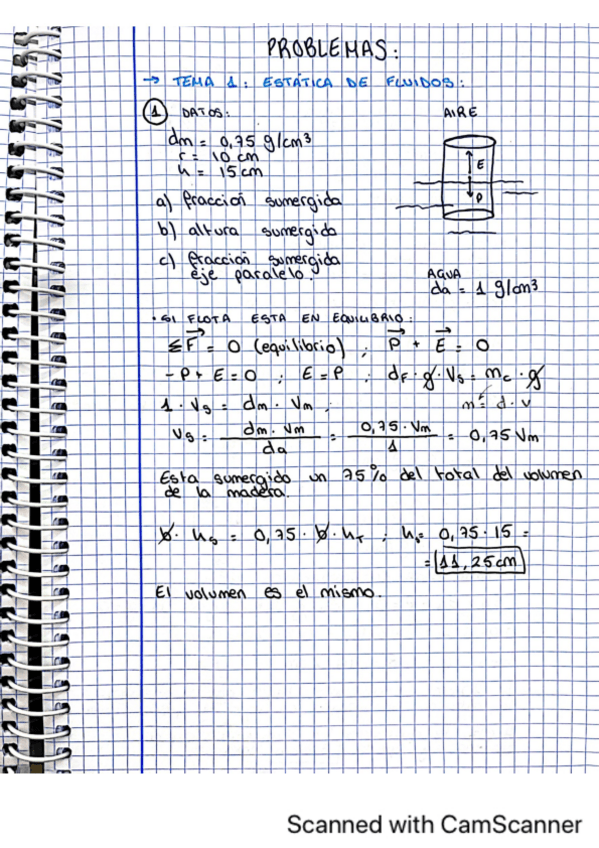 PROBLEMAS:
→ TEMA 1: ESTÁTICA DE FLUIDOS:
1 DATOS:
AIRE
dm = 0,75 g/cm³
r = 10 cm
h = 15 cm
E
P
a) fracción sumergida
b) altura sumergida
c) fracción sumergida
eje paralelo.
AGUA
da = 1 g/cm³
• SI FLOTA ESTA EN EQUILIBRIO:
ΣF = 0 (equilibrio) ; P + E = 0
- P + E = 0 ; E = P ; dF · g · Vs = mc · g
1 · Vs = dm · Vm ; m = d · v
Vs = dm · Vm / da = 0,75 · Vm / 1 = 0,75 Vm
Esta sumergido un 75% del total del volumen
de la madera.
b · hs = 0,75 · b · hT ; hs = 0,75 · 15 =
= 11,25cm
El volumen es el mismo.
Scanned with CamScanner